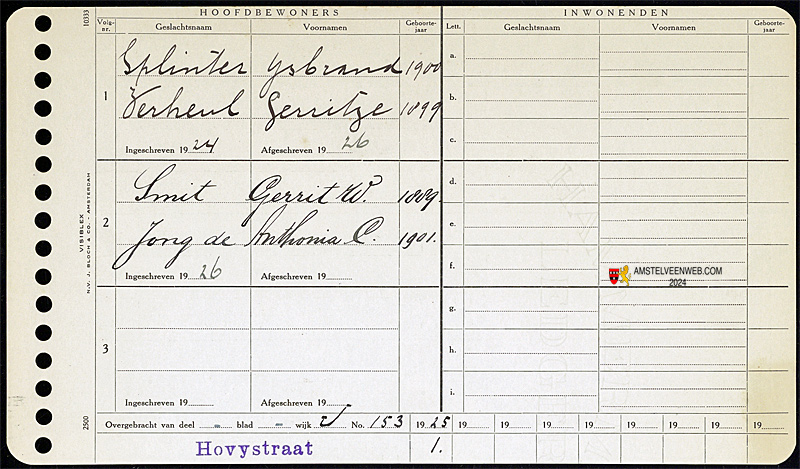 HOOFDBEWONERS INWONENDEN
Volg-nr. Geslachtsnaam Voornamen Geboorte-jaar Lett. Geslachtsnaam Voornamen Geboorte-jaar
10333
1
Splinter Ysbrand 1900
Verheul Gerritze 1899
Ingeschreven 1924 Afgeschreven 1926
a.
b.
c.
2
Smit Gerrit W. 1889.
Jong de Anthonia C. 1901.
Ingeschreven 1926 Afgeschreven 19
d.
e.
f.
AMSTELVEENWEB.COM
2024
VISIBLEX
N.V. J. BLOCH & CO. - AMSTERDAM
3
Ingeschreven 19 Afgeschreven 19
g.
h.
i.
2500
Overgebracht van deel - blad - wijk No. 153 1925 19 19 19 19 19 19 19 19
Hovystraat 1.